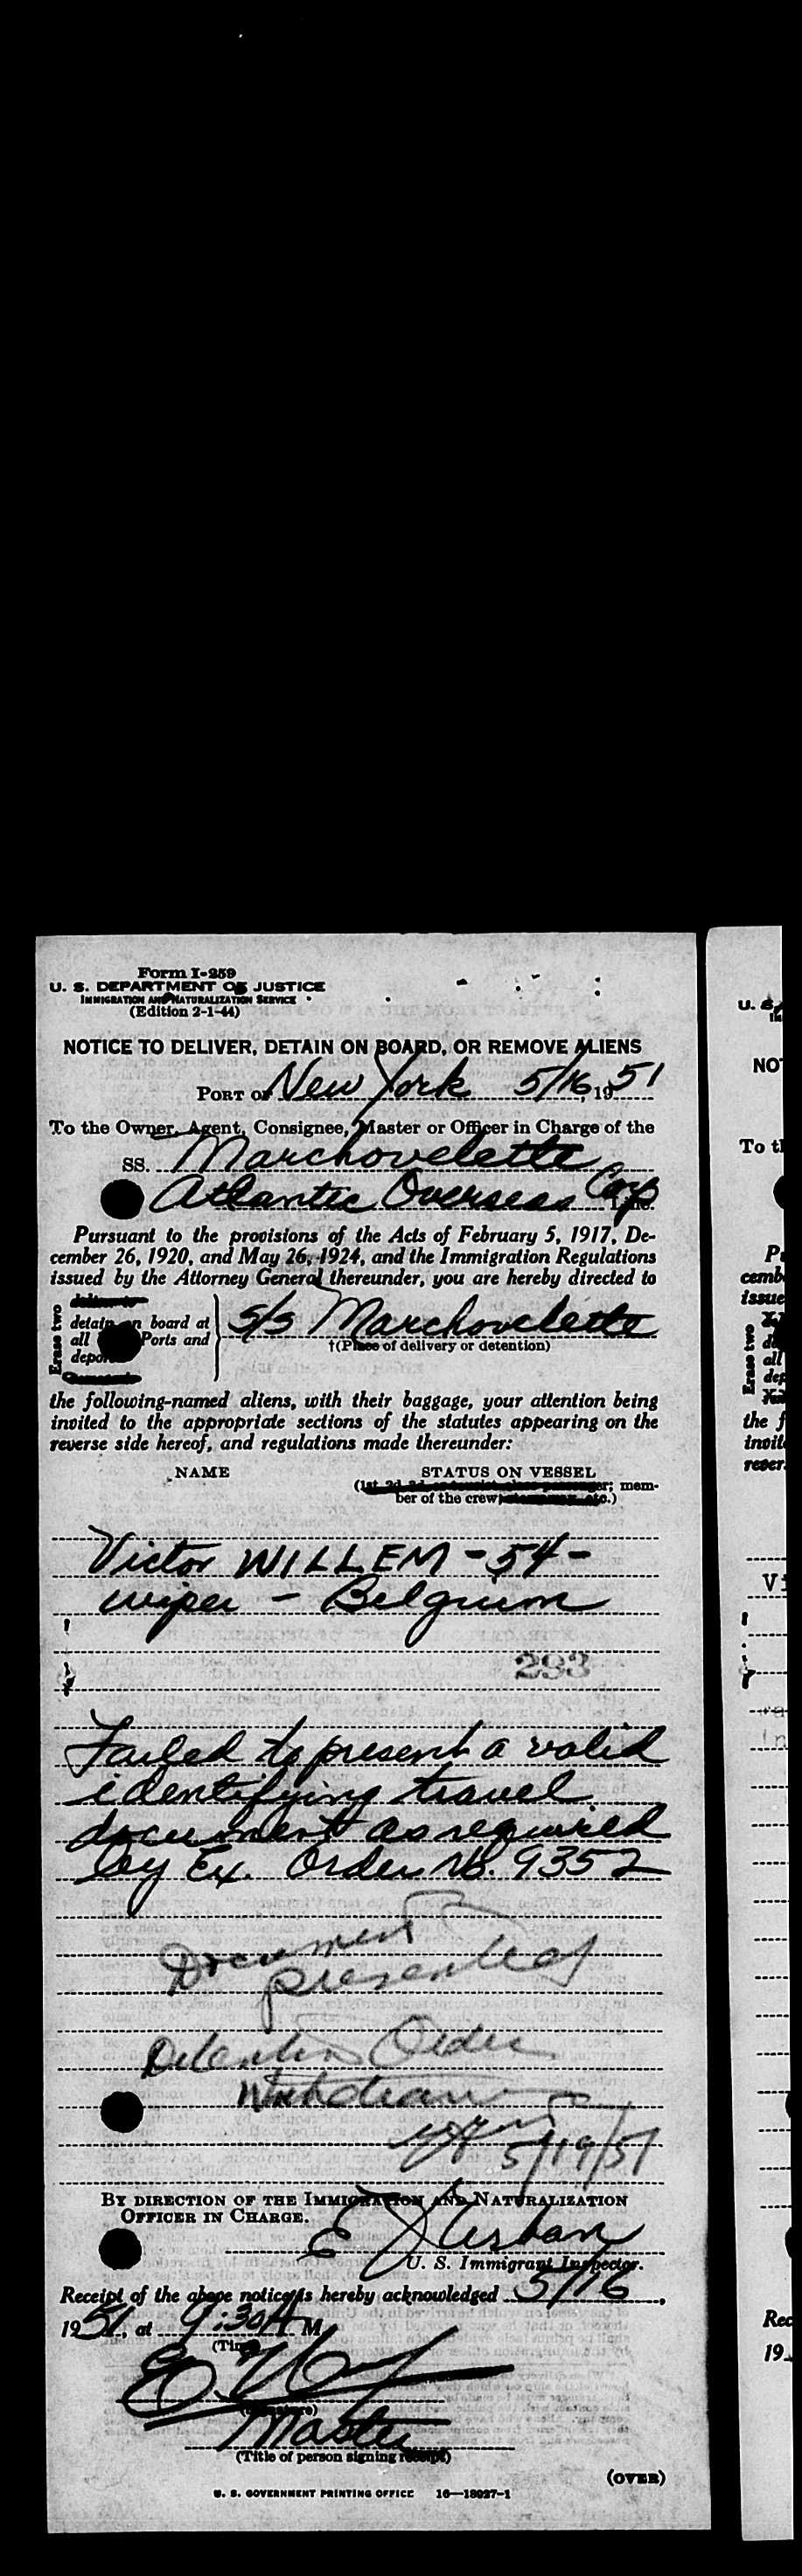 Form I-259
U. S. DEPARTMENT OF JUSTICE
IMMIGRATION AND NATURALIZATION SERVICE
(Edition 2-1-44)
NOTICE TO DELIVER, DETAIN ON BOARD, OR REMOVE ALIENS
PORT OF New York 5/16, 1951
To the Owner, Agent, Consignee, Master or Officer in Charge of the
SS. Marchovelette
Atlantic Overseas Corp Line.
Pursuant to the provisions of the Acts of February 5, 1917, De-
cember 26, 1920, and May 26, 1924, and the Immigration Regulations
issued by the Attorney General thereunder, you are hereby directed to
Erase two
detain on board at
all Ports and
deport
S/S Marchovelette
†(Place of delivery or detention)
the following-named aliens, with their baggage, your attention being
invited to the appropriate sections of the statutes appearing on the
reverse side hereof, and regulations made thereunder:
NAME STATUS ON VESSEL
(1st, 2d, 3d, or tourist class passenger; mem-
ber of the crew, etc.)
Victor WILLEM - 54 -
wiper - Belgium
293
Failed to present a valid
identifying travel
document as required
by Ex. Order No. 9352
Document
presented
Detention Order
Withdrawn
5/19/51
BY DIRECTION OF THE IMMIGRATION AND NATURALIZATION
OFFICER IN CHARGE.
E J Urban
U. S. Immigrant Inspector.
Receipt of the above notice is hereby acknowledged 5/16,
1951, at 9:30 A M.
(Time)
(Signature)
Master
(Title of person signing receipt)
(OVER)
U. S. GOVERNMENT PRINTING OFFICE 16—18027-1
U. S.
NOT
To th
cemb
issue
Erase two
all
dep
the f
invit
rever
Vi
Rec
19